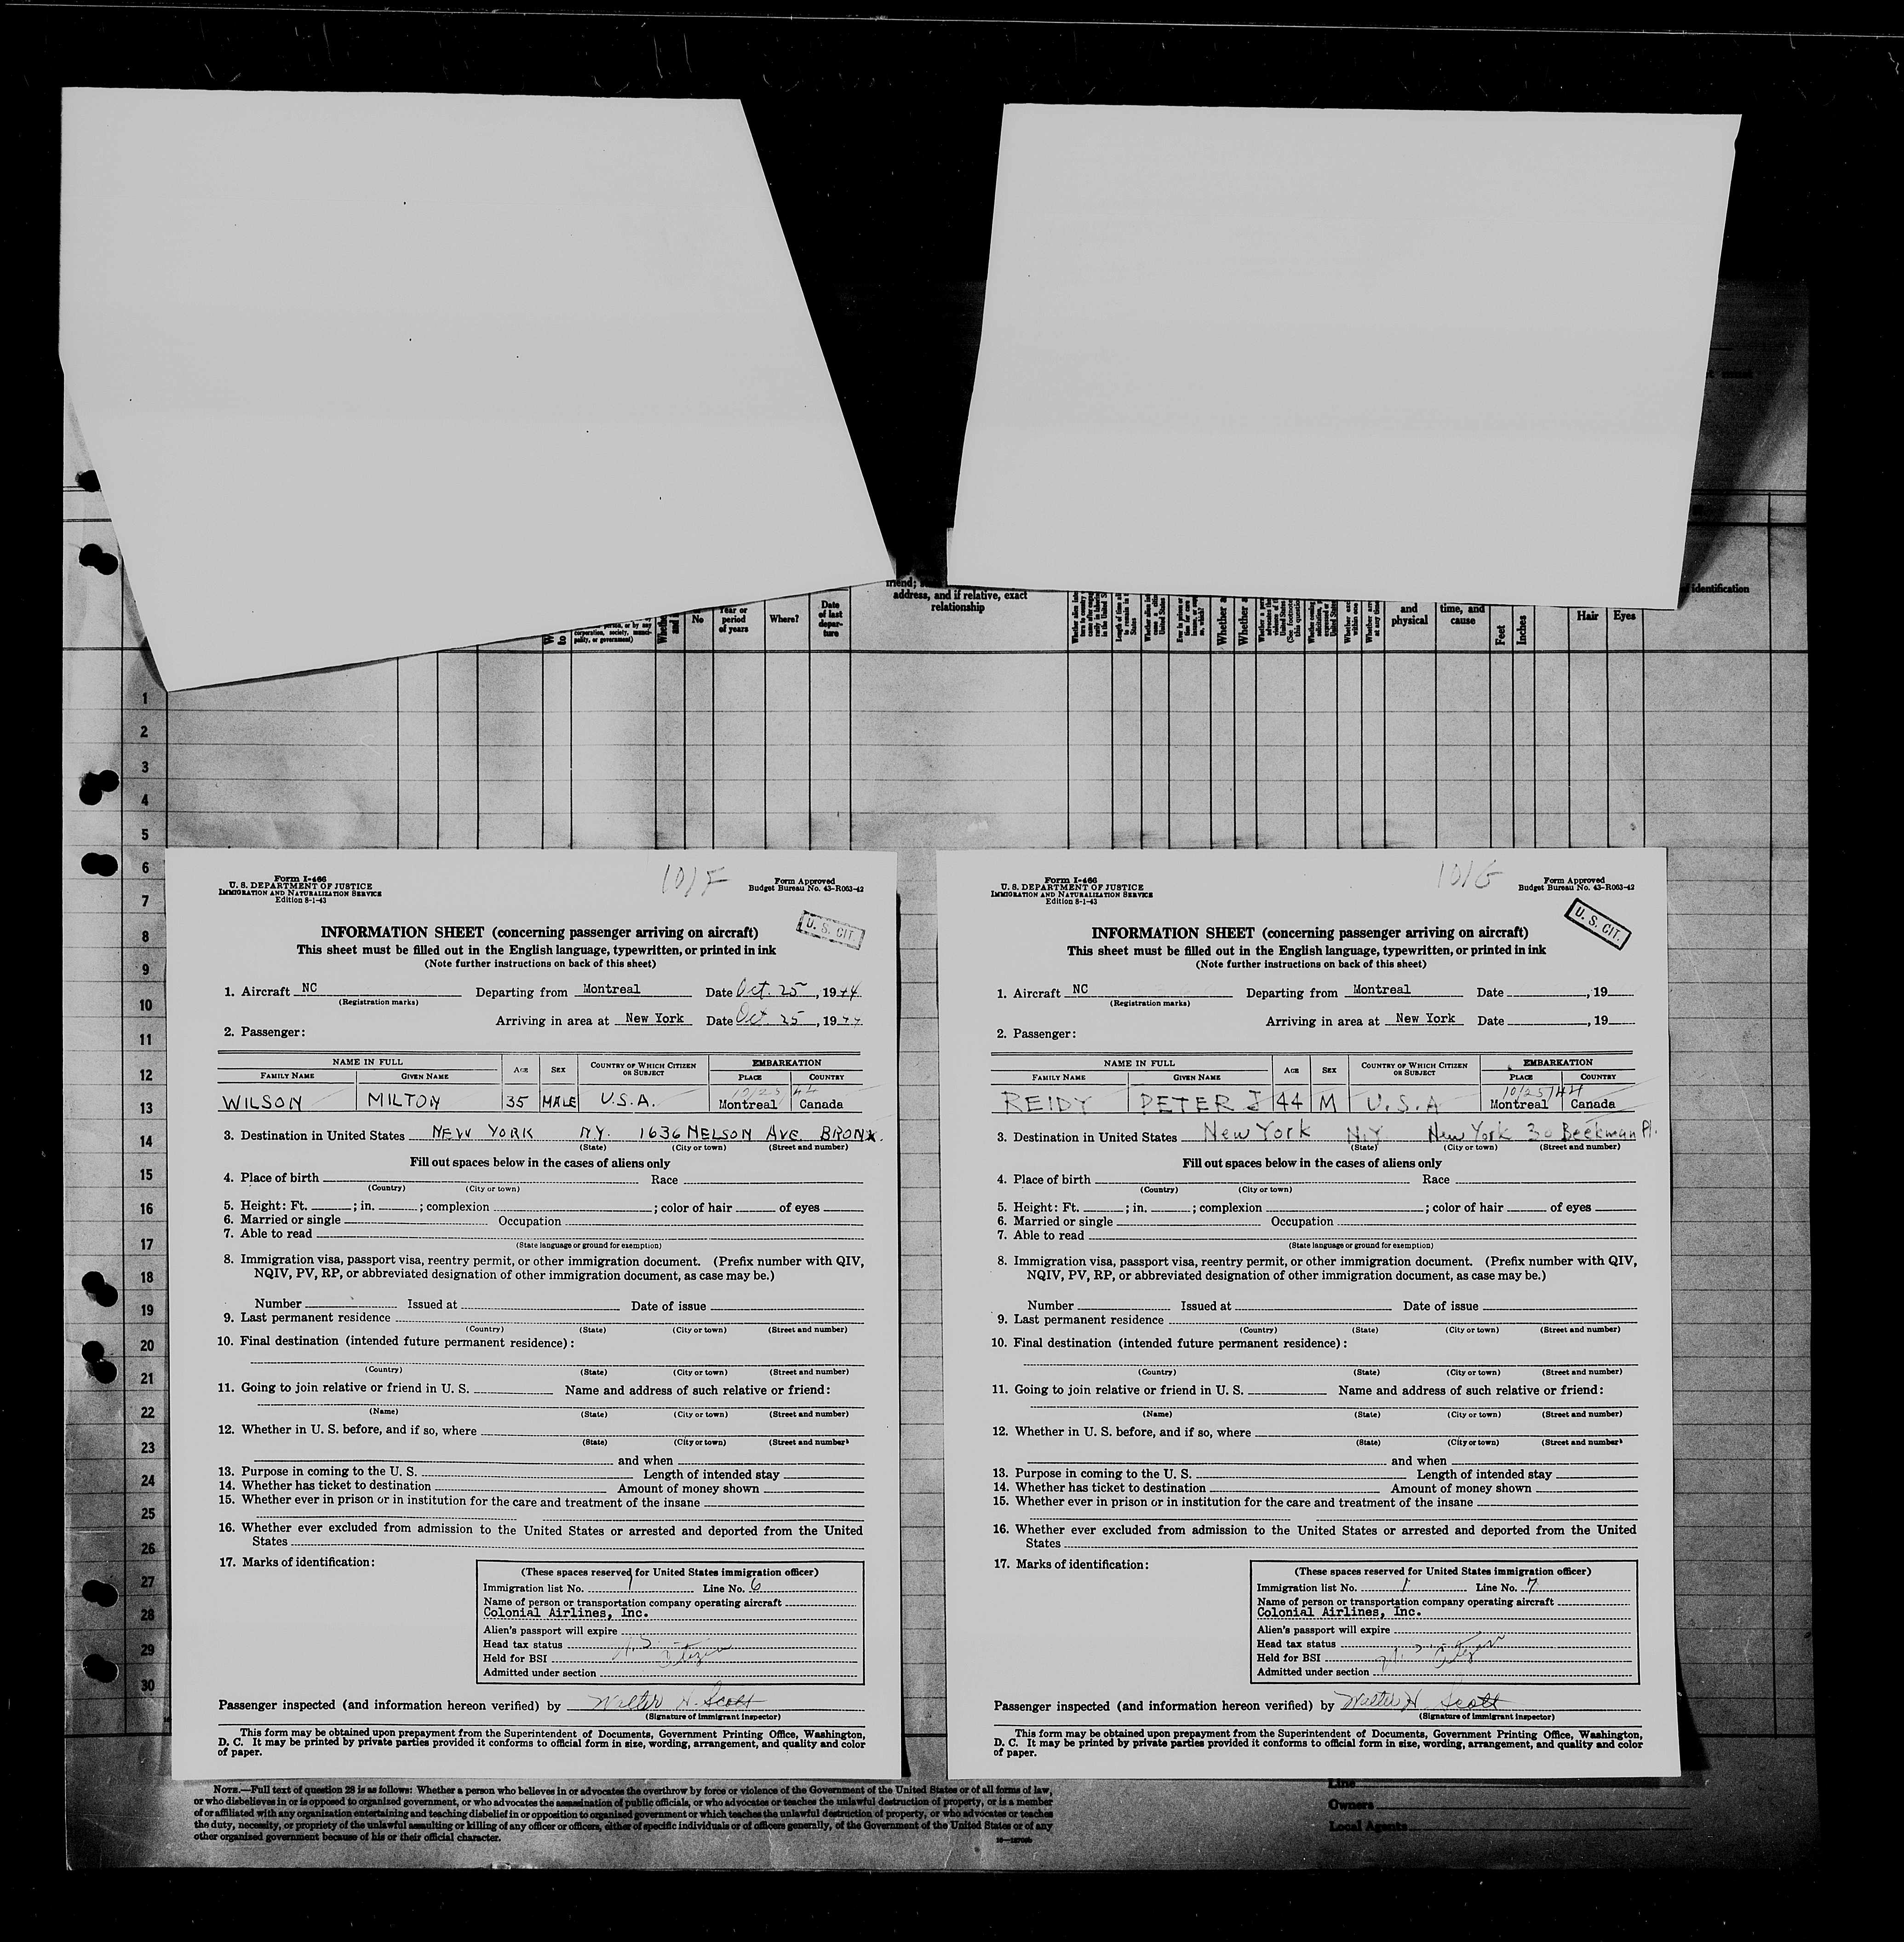 address, and if relative, exact
relationship
identification
No
Year or
period
of years
Where?
Date
of last
depar-
ture
and
physical
time, and
cause
Feet
Inches
Hair
Eyes
1
2
3
4
5
6
7
8
9
10
11
12
13
14
15
16
17
18
19
20
21
22
23
24
25
26
27
28
29
30
Form I-466
U. S. DEPARTMENT OF JUSTICE
IMMIGRATION AND NATURALIZATION SERVICE
Edition 8-1-43
101F
Form Approved
Budget Bureau No. 43-R063-42
U. S. CIT.
INFORMATION SHEET (concerning passenger arriving on aircraft)
This sheet must be filled out in the English language, typewritten, or printed in ink
(Note further instructions on back of this sheet)
1. Aircraft NC Departing from Montreal Date Oct. 25, 1944
(Registration marks)
Arriving in area at New York Date Oct. 25, 1944
2. Passenger:
NAME IN FULL AGE SEX COUNTRY OF WHICH CITIZEN OR SUBJECT EMBARKATION
FAMILY NAME GIVEN NAME PLACE COUNTRY
10/25 44
WILSON MILTON 35 MALE U.S.A. Montreal Canada
3. Destination in United States NEW YORK N.Y. 1636 NELSON AVE BRONX.
(State) (City or town) (Street and number)
Fill out spaces below in the cases of aliens only
4. Place of birth Race
(Country) (City or town)
5. Height: Ft. ; in. ; complexion ; color of hair of eyes
6. Married or single Occupation
7. Able to read
(State language or ground for exemption)
8. Immigration visa, passport visa, reentry permit, or other immigration document. (Prefix number with QIV,
NQIV, PV, RP, or abbreviated designation of other immigration document, as case may be.)
Number Issued at Date of issue
9. Last permanent residence
(Country) (State) (City or town) (Street and number)
10. Final destination (intended future permanent residence):
(Country) (State) (City or town) (Street and number)
11. Going to join relative or friend in U. S. Name and address of such relative or friend:
(Name) (State) (City or town) (Street and number)
12. Whether in U. S. before, and if so, where
(State) (City or town) (Street and number)
and when
13. Purpose in coming to the U. S. Length of intended stay
14. Whether has ticket to destination Amount of money shown
15. Whether ever in prison or in institution for the care and treatment of the insane
16. Whether ever excluded from admission to the United States or arrested and deported from the United
States
17. Marks of identification:
(These spaces reserved for United States immigration officer)
Immigration list No. 1 Line No. 6
Name of person or transportation company operating aircraft
Colonial Airlines, Inc.
Alien's passport will expire
Head tax status
Held for BSI
Admitted under section
Passenger inspected (and information hereon verified) by Walter H. Scott
(Signature of immigrant inspector)
This form may be obtained upon prepayment from the Superintendent of Documents, Government Printing Office, Washington,
D. C. It may be printed by private parties provided it conforms to official form in size, wording, arrangement, and quality and color
of paper.
Form I-466
U. S. DEPARTMENT OF JUSTICE
IMMIGRATION AND NATURALIZATION SERVICE
Edition 8-1-43
101G
Form Approved
Budget Bureau No. 43-R063-42
U. S. CIT.
INFORMATION SHEET (concerning passenger arriving on aircraft)
This sheet must be filled out in the English language, typewritten, or printed in ink
(Note further instructions on back of this sheet)
1. Aircraft NC Departing from Montreal Date , 19
(Registration marks)
Arriving in area at New York Date , 19
2. Passenger:
NAME IN FULL AGE SEX COUNTRY OF WHICH CITIZEN OR SUBJECT EMBARKATION
FAMILY NAME GIVEN NAME PLACE COUNTRY
10/25/44
REIDY PETER J 44 M U.S.A Montreal Canada
3. Destination in United States New York N.Y New York 30 Beekman Pl.
(State) (City or town) (Street and number)
Fill out spaces below in the cases of aliens only
4. Place of birth Race
(Country) (City or town)
5. Height: Ft. ; in. ; complexion ; color of hair of eyes
6. Married or single Occupation
7. Able to read
(State language or ground for exemption)
8. Immigration visa, passport visa, reentry permit, or other immigration document. (Prefix number with QIV,
NQIV, PV, RP, or abbreviated designation of other immigration document, as case may be.)
Number Issued at Date of issue
9. Last permanent residence
(Country) (State) (City or town) (Street and number)
10. Final destination (intended future permanent residence):
(Country) (State) (City or town) (Street and number)
11. Going to join relative or friend in U. S. Name and address of such relative or friend:
(Name) (State) (City or town) (Street and number)
12. Whether in U. S. before, and if so, where
(State) (City or town) (Street and number)
and when
13. Purpose in coming to the U. S. Length of intended stay
14. Whether has ticket to destination Amount of money shown
15. Whether ever in prison or in institution for the care and treatment of the insane
16. Whether ever excluded from admission to the United States or arrested and deported from the United
States
17. Marks of identification:
(These spaces reserved for United States immigration officer)
Immigration list No. 1 Line No. 7
Name of person or transportation company operating aircraft
Colonial Airlines, Inc.
Alien's passport will expire
Head tax status
Held for BSI
Admitted under section
Passenger inspected (and information hereon verified) by Walter H. Scott
(Signature of immigrant inspector)
This form may be obtained upon prepayment from the Superintendent of Documents, Government Printing Office, Washington,
D. C. It may be printed by private parties provided it conforms to official form in size, wording, arrangement, and quality and color
of paper.
NOTE.—Full text of question 28 is as follows: Whether a person who believes in or advocates the overthrow by force or violence of the Government of the United States or of all forms of law,
or who disbelieves in or is opposed to organized government, or who advocates the assassination of public officials, or who advocates or teaches the unlawful destruction of property, or is a member
of or affiliated with any organization entertaining and teaching disbelief in or opposition to organized government or which teaches the unlawful destruction of property, or who advocates or teaches
the duty, necessity, or propriety of the unlawful assaulting or killing of any officer or officers, either of specific individuals or of officers generally, of the Government of the United States or of any
other organized government because of his or their official character.
Line
Owners
Local Agents